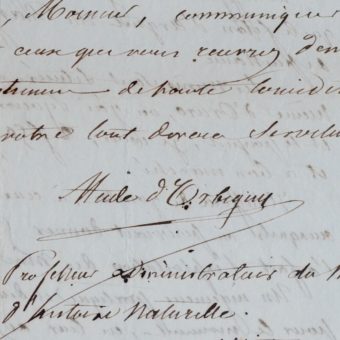 , Monsieur, communiquer
ceux que vous recevrez d
de haute considé
votre tout dévoué Serviteur
Alcide d'Orbigny
Professeur administrateur du
d'histoire Naturelle.